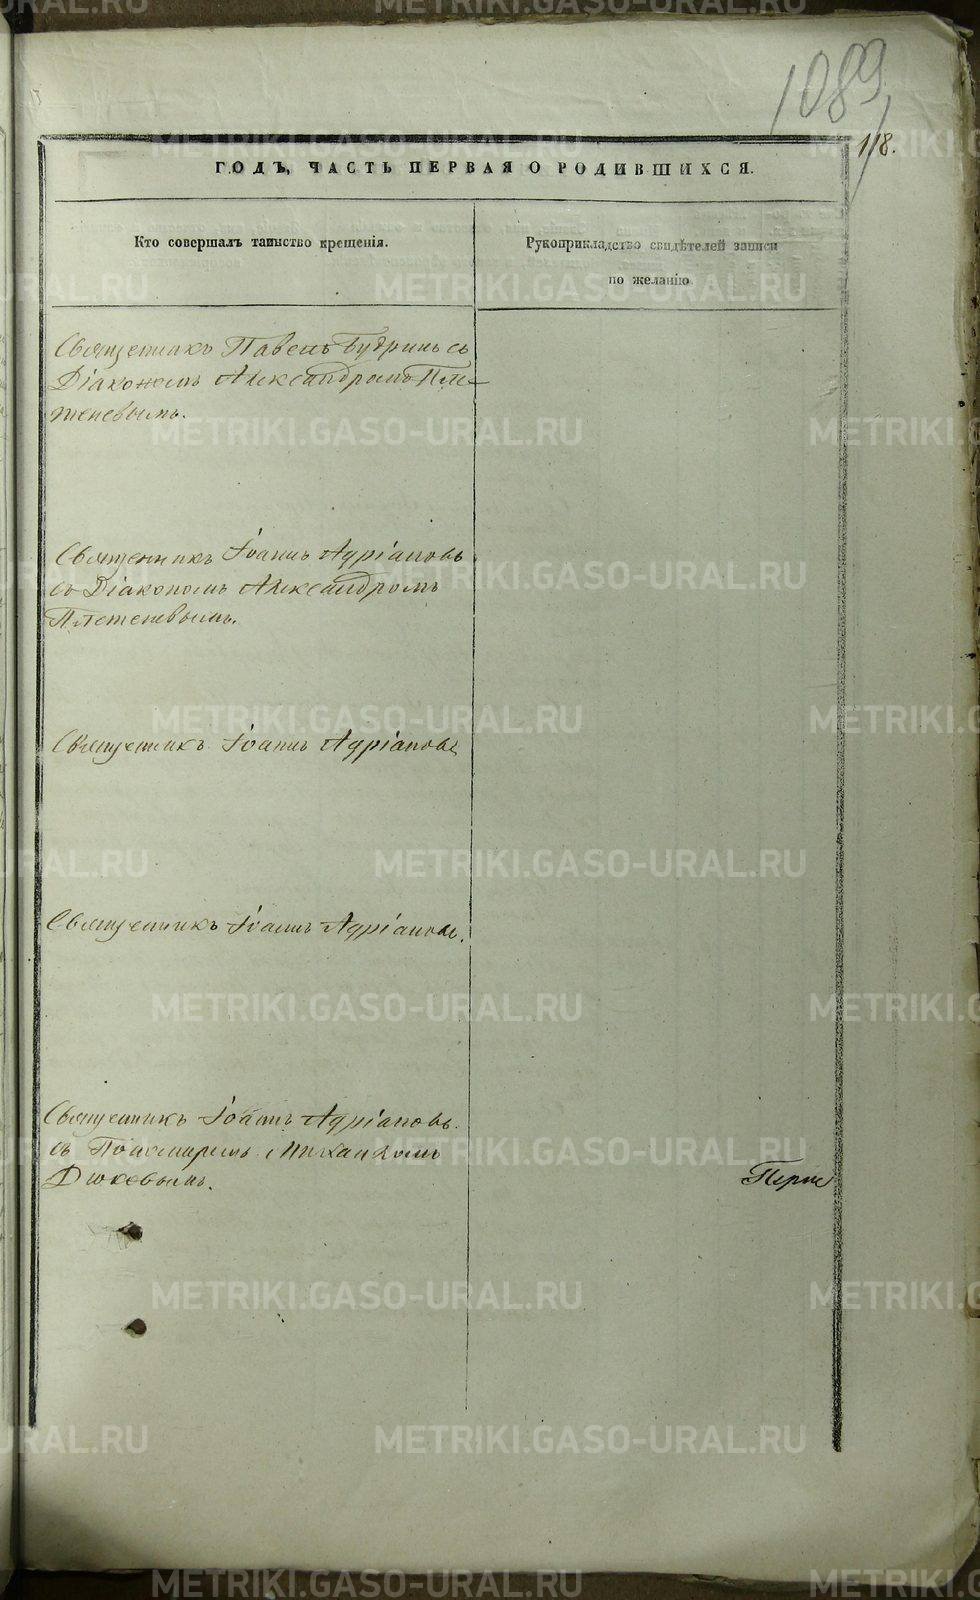 1089
118.
ГОДЪ, ЧАСТЬ ПЕРВАЯ О РОДИВШИХСЯ.
Кто совершалъ таинство крещенія.
Рукоприкладство свидѣтелей записи
по желанію
Священникъ Павелъ Будринъ съ
Діакономъ Александромъ Пле-
теневымъ.
Священникъ Іоаннъ Адріановъ
съ Діакономъ Александромъ
Плетеневымъ.
Священникъ Іоаннъ Адріановъ
Священникъ Іоаннъ Адріановъ.
Священникъ Іоаннъ Адріановъ
съ Пономаремъ Михаиломъ
Дюковымъ.
METRIKI.GASO-URAL.RU